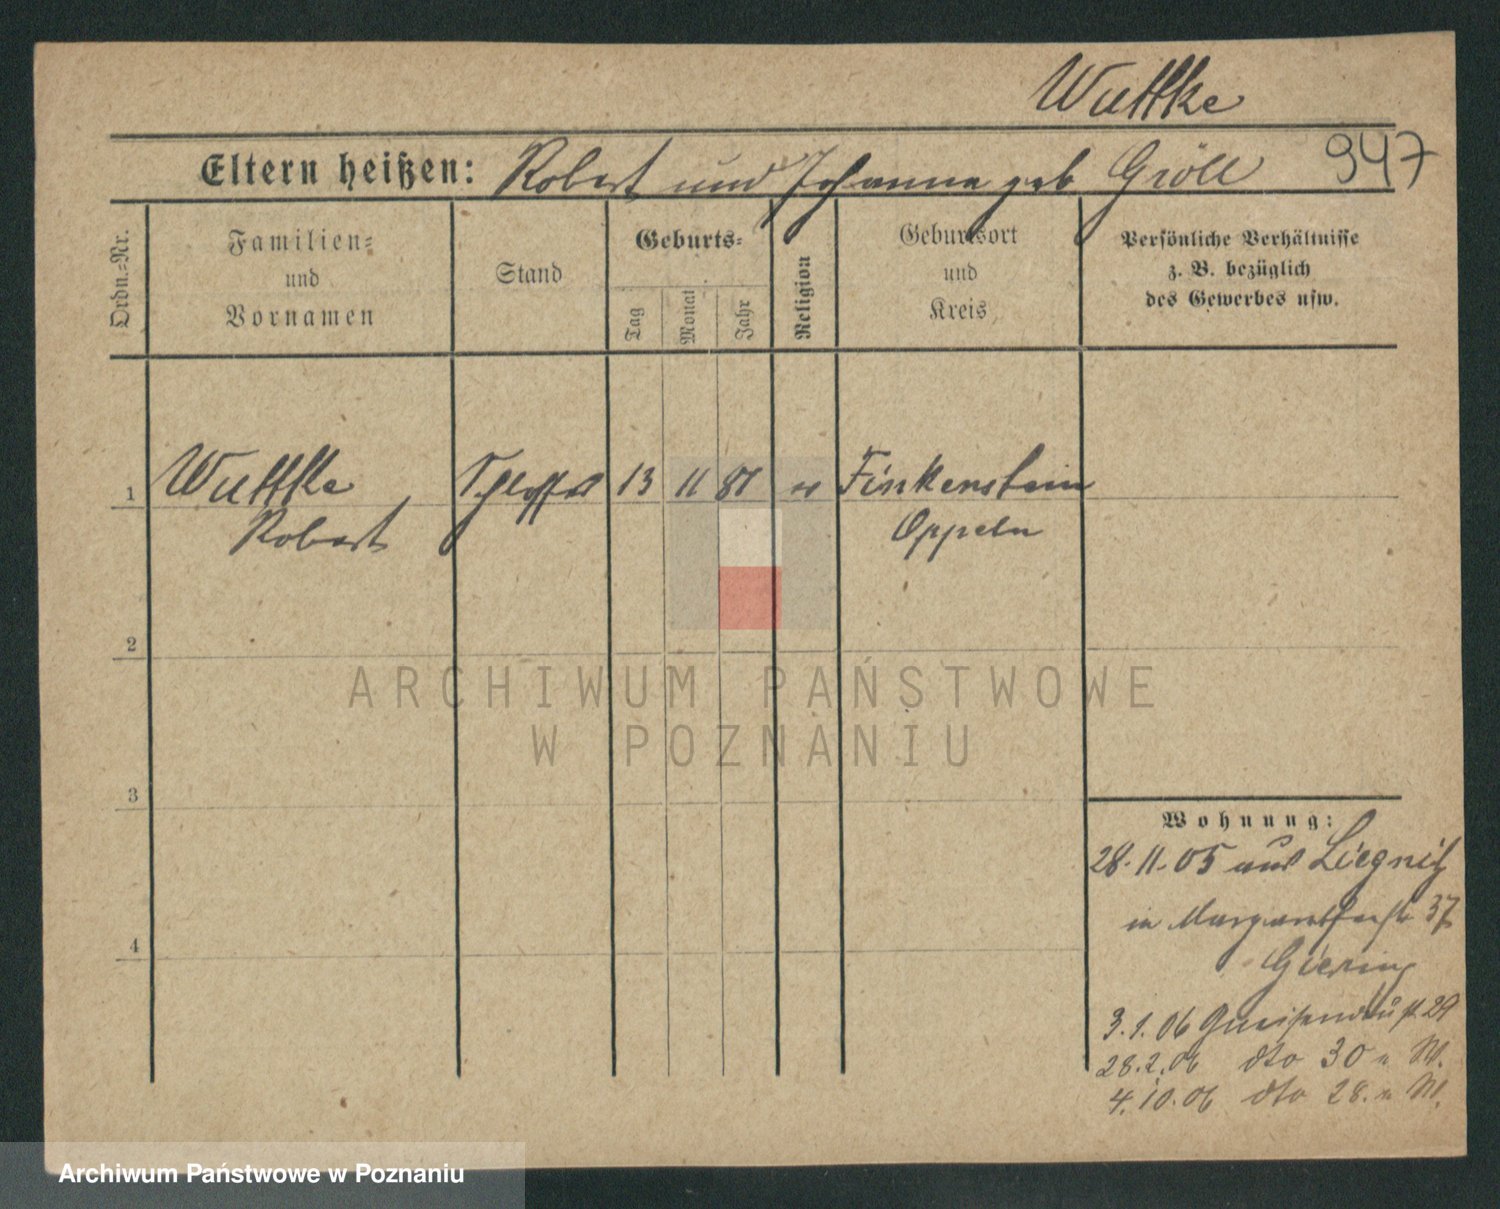 Wuttke
Eltern heißen: Robert und Johanna geb Gröll 947
Ordn.-Nr.
Familien- und Vornamen
Stand
Geburts-
Tag
Monat
Jahr
Religion
Geburtsort und Kreis
Persönliche Verhältnisse z. B. bezüglich des Gewerbes usw.
1 Wuttke 13 11 87 Finkenstein
Robert Oppeln
2
3
4
Wohnung:
28.11.05 aus Liegnitz
in 37
Giering
3.1.06 29
28.2.06 dto 30 W.
4.10.06 dto 28. W.
ARCHIWUM PAŃSTWOWE
W POZNANIU
Archiwum Państwowe w Poznaniu